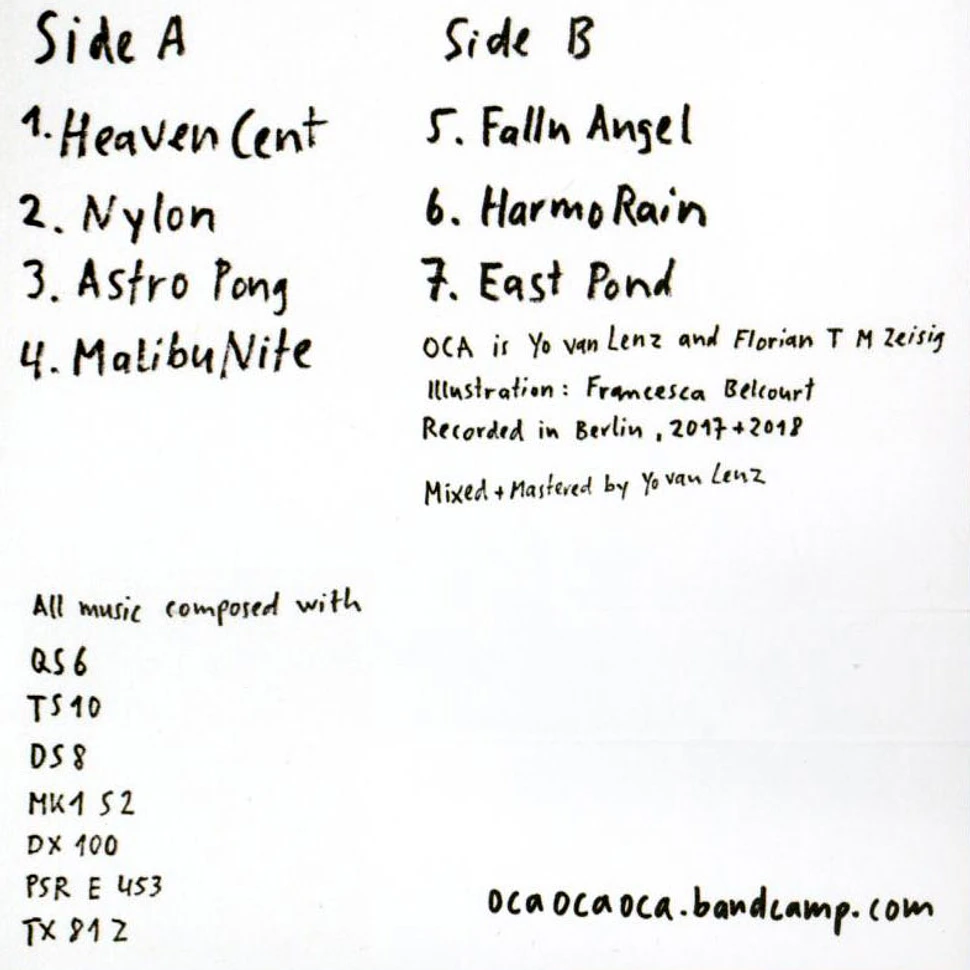 Side A
1. Heaven Cent
2. Nylon
3. Astro Pong
4. Malibu Nite
Side B
5. Falln Angel
6. Harmo Rain
7. East Pond
OCA is Yo van Lenz and Florian T M Zeisig
Illustration: Francesca Belcourt
Recorded in Berlin, 2017+2018
Mixed + Mastered by Yo van Lenz
All music composed with
QS6
TS10
DS8
MK1 S2
DX 100
PSR E 453
TX 81 Z
ocaocaoca.bandcamp.com